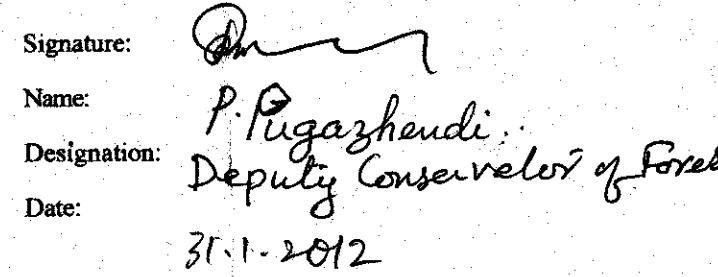 Signature:
Name: P. Pugazhendi..
Designation: Deputy Conservator of Fores
Date: 31.1.2012